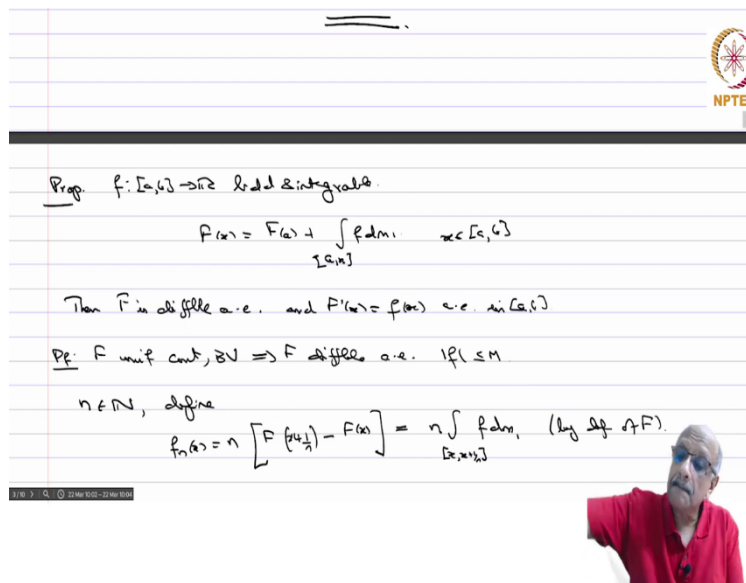 NPTE
Prop. f: [a,b] → ℝ bdd & integrable.
F(x) = F(a) + ∫ f dm₁ x ∈ [a,b]
[a,x]
Then F is diffble a.e. and F'(x) = f(x) a.e. in [a,b]
Pf: F unif cont, BV ⇒ F diffble a.e. |f| ≤ M
n ∈ ℕ, define
fₙ(x) = n [F(x+1/n) - F(x)] = n ∫ f dm₁ (by def of F).
[x,x+1/n]
3/10 22 Mar 10:02 – 22 Mar 10:04